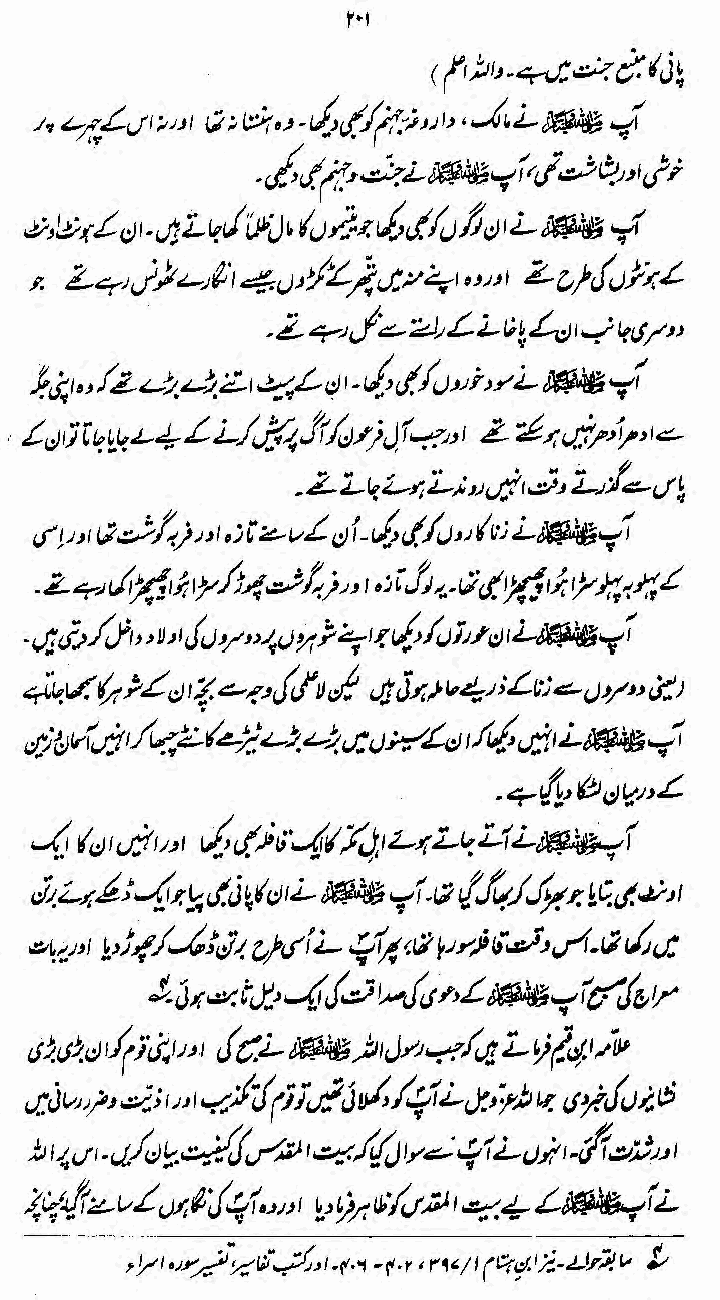 ۲۰۱
پانی کا منبع جنت میں ہے۔ واللہ اعلم)
آپ ﷺ نے مالک، داروغۂ جہنم کو بھی دیکھا۔ وہ ہنستا نہ تھا اور نہ اس کے چہرے پر
خوشی اور بشاشت تھی، آپ ﷺ نے جنّت و جہنم بھی دیکھی۔
آپ ﷺ نے ان لوگوں کو بھی دیکھا جو یتیموں کا مال ظلماً کھا جاتے ہیں۔ ان کے ہونٹ اونٹ
کے ہونٹوں کی طرح تھے اور وہ اپنے منہ میں پتھر کے ٹکڑوں جیسے انگارے ٹھونس رہے تھے جو
دوسری جانب ان کے پاخانے کے راستے سے نکل رہے تھے۔
آپ ﷺ نے سود خوروں کو بھی دیکھا۔ ان کے پیٹ اتنے بڑے بڑے تھے کہ وہ اپنی جگہ
سے ادھر اُدھر نہیں ہو سکتے تھے اور جب آلِ فرعون کو آگ پر پیش کرنے کے لیے لے جایا جاتا تو ان کے
پاس سے گذرتے وقت انہیں روندتے ہوئے جاتے تھے۔
آپ ﷺ نے زنا کاروں کو بھی دیکھا۔ اُن کے سامنے تازہ اور فربہ گوشت تھا اور اِسی
کے پہلو بہ پہلو سڑا ہُوا چھیچھڑا بھی تھا۔ یہ لوگ تازہ اور فربہ گوشت چھوڑ کر سڑا ہُوا چھیچھڑا کھا رہے تھے۔
آپ ﷺ نے ان عورتوں کو دیکھا جو اپنے شوہروں پر دوسروں کی اولاد داخل کر دیتی ہیں۔
(یعنی دوسروں سے زنا کے ذریعے حاملہ ہوتی ہیں لیکن لاعلمی کی وجہ سے بچّہ ان کے شوہر کا سمجھا جاتا ہے
آپ ﷺ نے انہیں دیکھا کہ ان کے سینوں میں بڑے بڑے ٹیڑھے کانٹے چبھا کر انہیں آسمان و زمین
کے درمیان لٹکا دیا گیا ہے۔
آپ ﷺ نے آتے جاتے ہوئے اہلِ مکّہ کا ایک قافلہ بھی دیکھا اور انہیں ان کا ایک
اونٹ بھی بتایا جو بھڑک کر بھاگ گیا تھا۔ آپ ﷺ نے ان کا پانی بھی پیا جو ایک ڈھکے ہوئے برتن
میں رکھا تھا۔ اس وقت قافلہ سو رہا تھا، پھر آپؐ نے اُسی طرح برتن ڈھک کر چھوڑ دیا اور یہ بات
معراج کی صبح آپ ﷺ کے دعویٰ کی صداقت کی ایک دلیل ثابت ہوئی۔ؔ۴
علاّمہ ابنِ قیم فرماتے ہیں کہ جب رسول اللہ ﷺ نے صبح کی اور اپنی قوم کو ان بڑی بڑی
نشانیوں کی خبر دی جو اللہ عزّ و جل نے آپؐ کو دکھلائی تھیں تو قوم کی تکذیب اور اذیّت و ضرر رسانی میں
اور شدّت آگئی۔ انہوں نے آپؐ سے سوال کیا کہ بیت المقدس کی کیفیت بیان کریں۔ اس پر اللہ
نے آپ ﷺ کے لیے بیت المقدس کو ظاہر فرما دیا اور وہ آپؐ کی نگاہوں کے سامنے آگیا۔ چنانچہ
ؔ۴ سابقہ حوالے۔ نیز ابنِ ہشام ۱/۳۹۷، ۴۰۲ - ۴۰۶۔ اور کتب تفاسیر، تفسیر سورہ اسراء